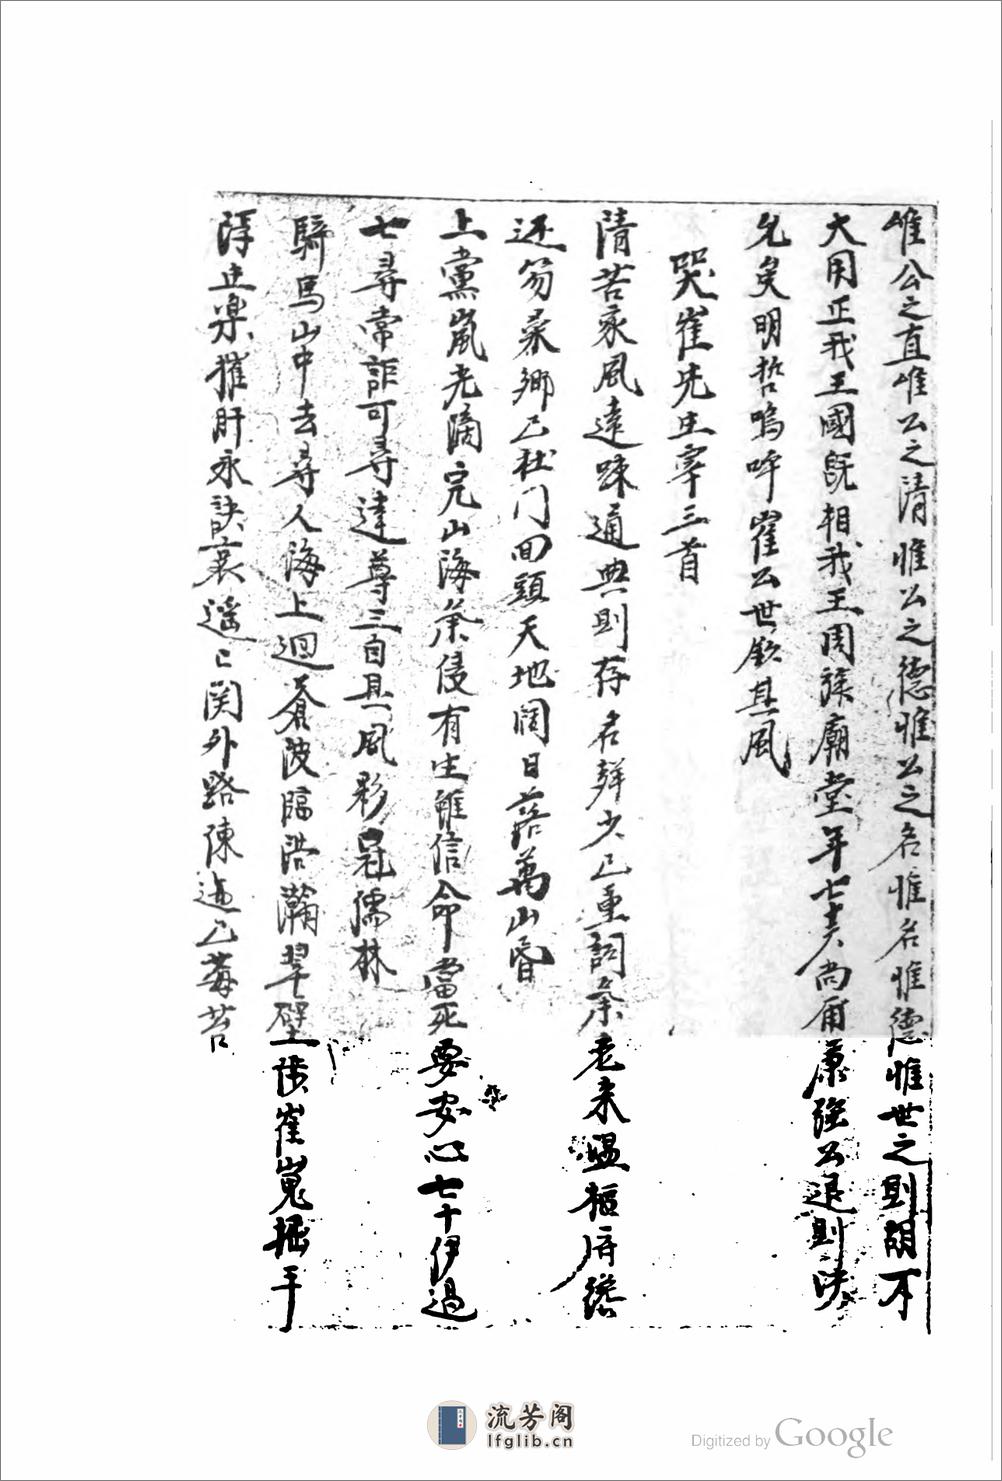 惟公之直惟公之清惟公之德惟公之名惟名惟德惟世之則胡不
大用正我王國旣相我王周旋廟堂年七十八尚爾康強公退則決
允矣明哲嗚呼崔公世欽其風
哭崔先生宰三首
清苦家風遠味通典則存名群少已重詞余老來溫
还笏桑鄉已杜门回頭天地闊日落萬山昏
上黨嵐光滴完山海侵有生雖信命當死要安心七十伊過
七尋常詎可尋達尊三自具風彩冠儒林
騎馬山中去尋人海上迴蒼波臨浩瀚翠壁陟崔嵬握手
淂立樂摧肝永訣哀遥〻関外路陳迹已莓苔
流芳阁
lfglib.cn
Digitized by Google